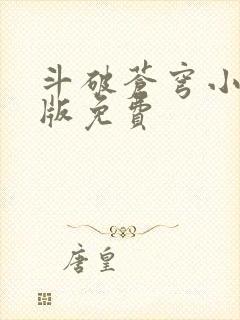 斗破苍穹小
版免費
唐皇